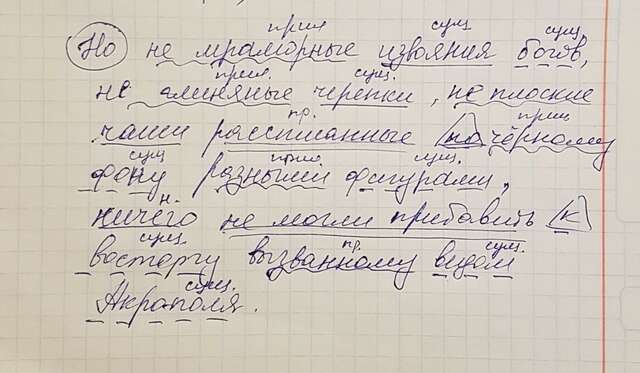 прил сущ сущ.
Но не мраморные изваяния богов,
прил. сущ.
не глиняные черепки, не плоские
пр. прил
чаши рассписанные по чёрному
сущ прил. сущ.
фону разными фигурами,
н.
ничего не могли прибавить к
сущ. пр. сущ.
восторгу вызванному видом
сущ.
Акрополя.